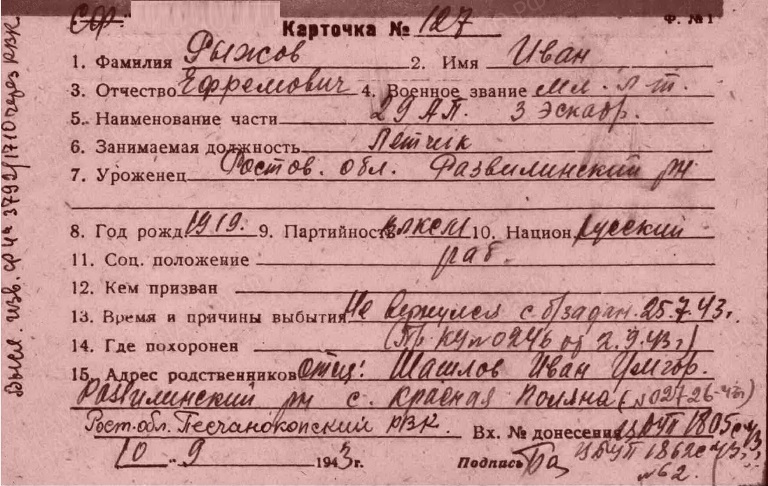 СФ.
Карточка № 127
Ф. №1
1. Фамилия Рыжов 2. Имя Иван
3. Отчество Ефремович 4. Военное звание мл. л-т.
5. Наименование части 29 АП. 3 эскадр.
6. Занимаемая должность Летчик
7. Уроженец Ростов. обл. Развилинский рн
8. Год рожд. 1919. 9. Партийность ВЛКСМ 10. Национ. русский
11. Соц. положение раб.
12. Кем призван
13. Время и причины выбытия Не вернулся с б/задан. 25.7.43г.
14. Где похоронен (Пр. КУ №0246 от 2.9.43г)
15. Адрес родственников отец: Шашлов Иван
Развилинский рн с. Красная Поляна (№02726-43г)
Рост. обл. Песчанокопский РВК. Вх. № донесения 1805с-43
10 " 9 1943г. Подпись
1862с-43г.
№62.
Высл. изв. ф 4а 3792/1710 через РВК